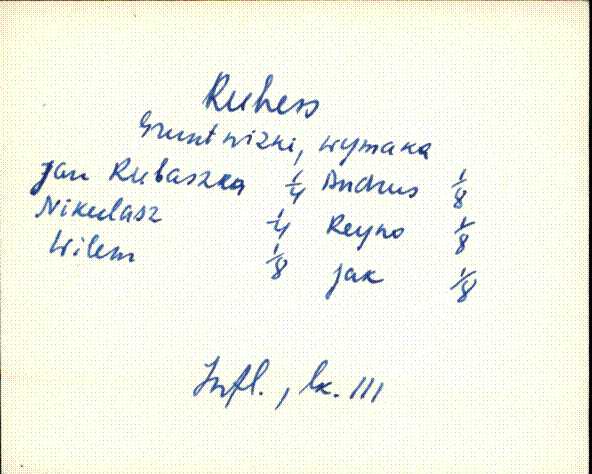 Ruhess
Grunt nizki, wymaka
Jan Rubaszka 1/4 Andrus 1/8
Nikulasz 1/4 Reyno 1/8
Wilem 1/8 Jak 1/8
Infl., lx. III